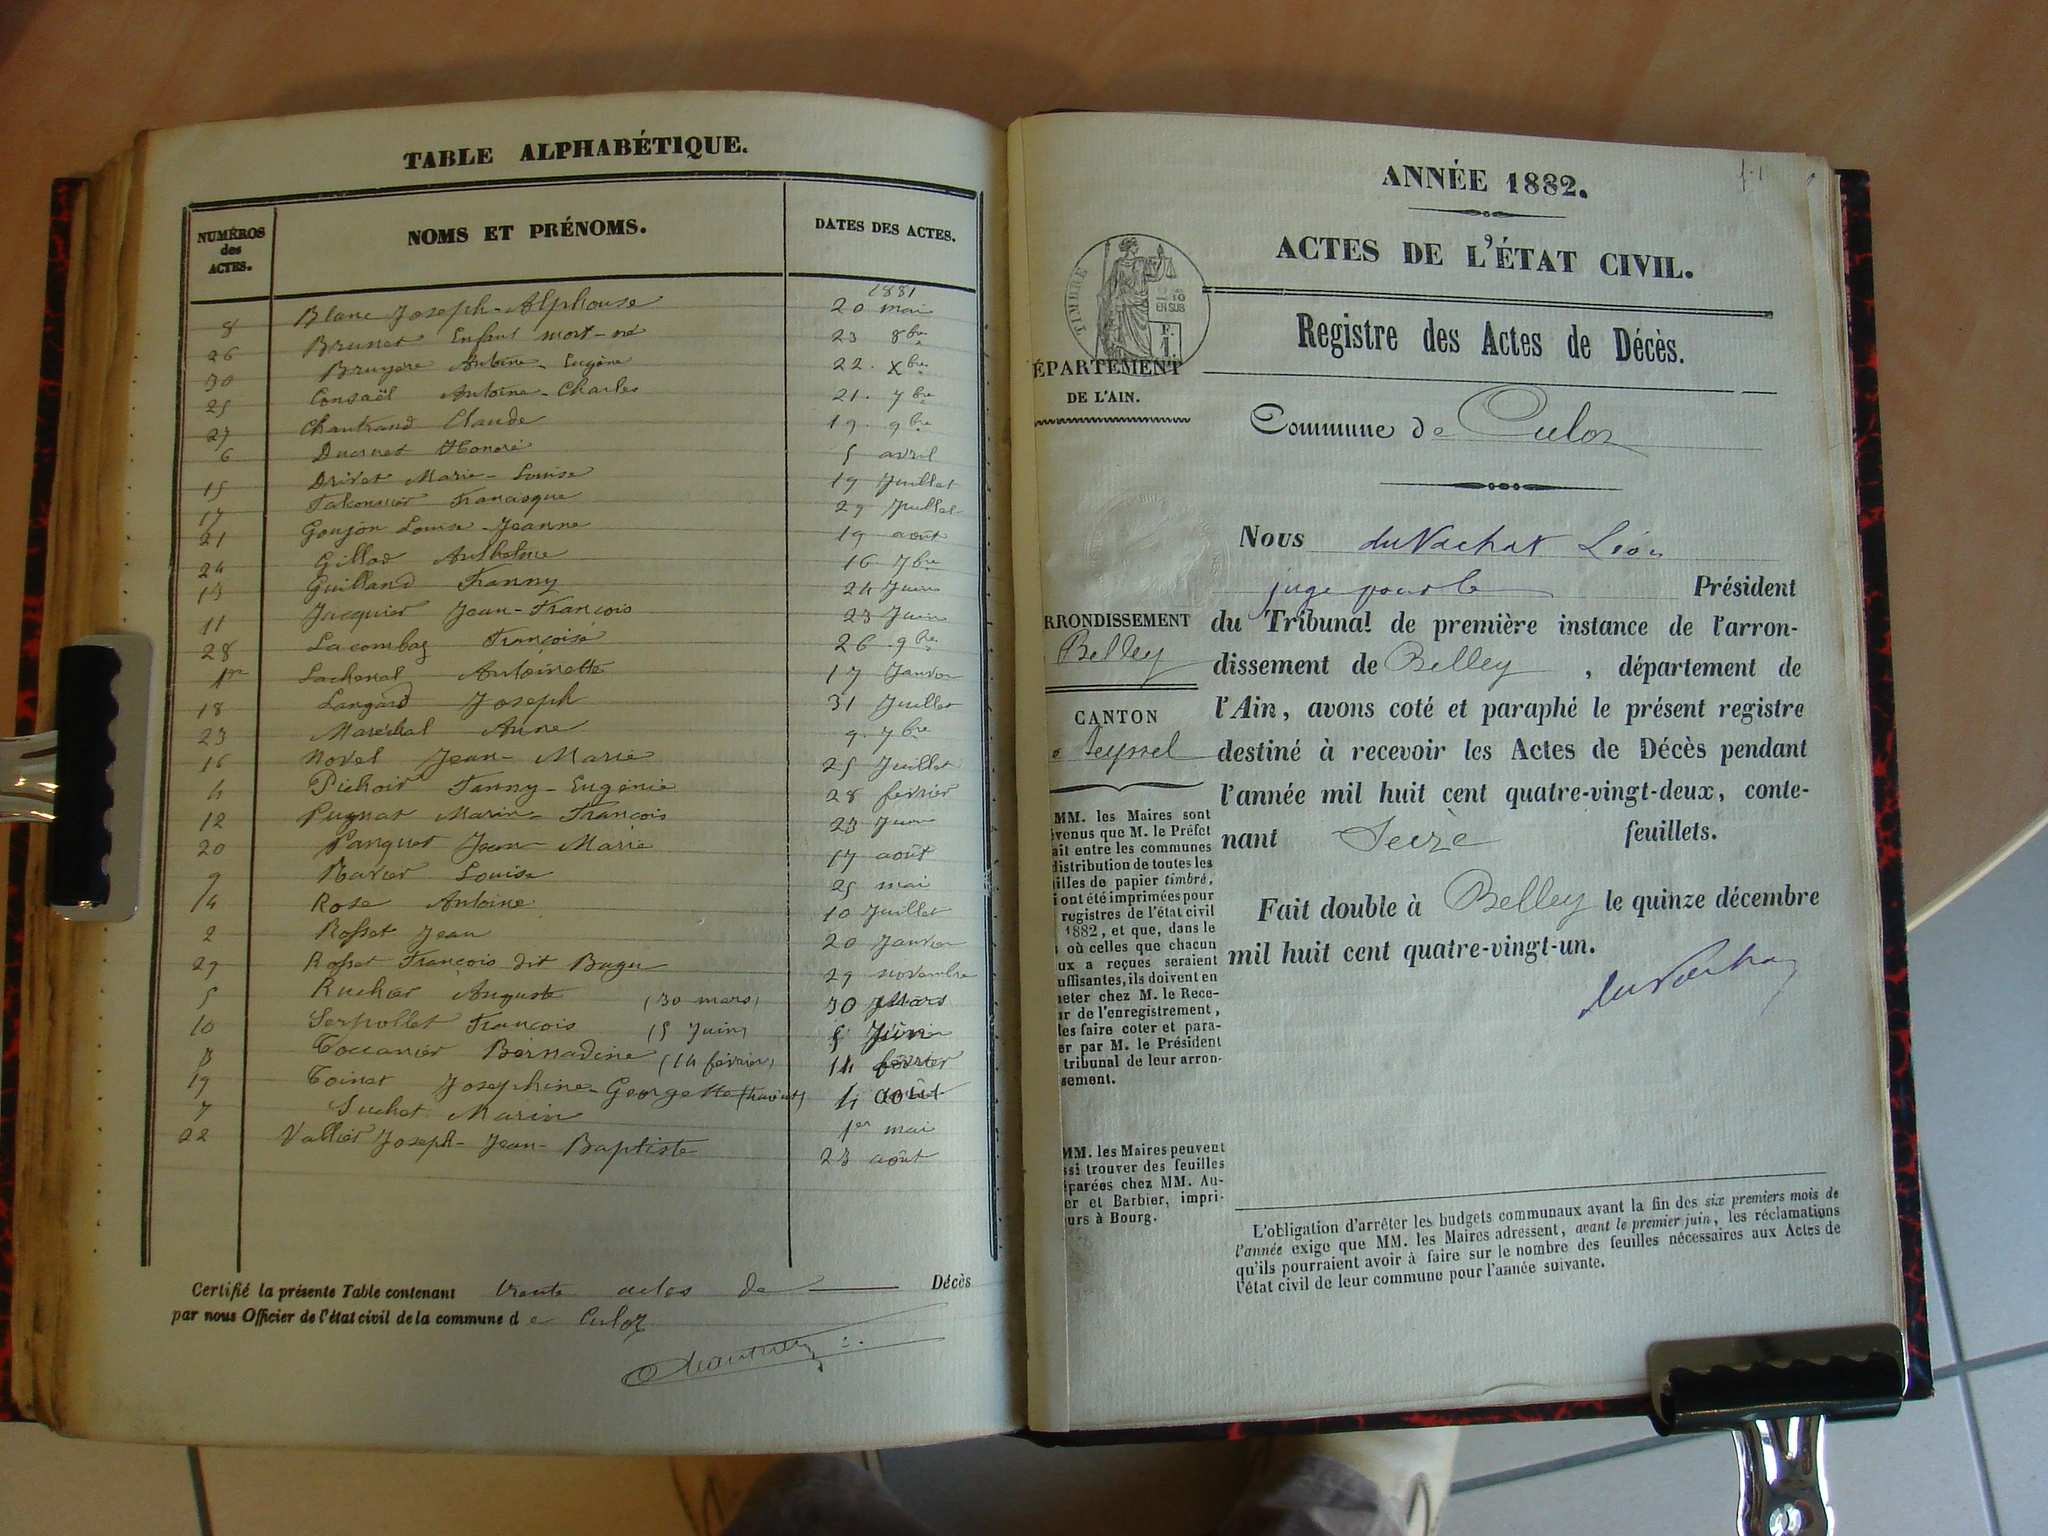 TABLE ALPHABÉTIQUE.
NUMÉROS des ACTES. NOMS ET PRÉNOMS. DATES DES ACTES.
1881
8 Blanc Joseph-Alphonse 20 mai
26 Brunet Enfant mort-né 23 8bre
30 Bruyere Antoine-Eugène 22. Xbre
25 Consaël Antoine-Charles 21. 7bre
27 Chantrand Claude 19. 9bre
6 Ducruet Honoré 5 avril
15 Drivet Marie-Louise 19 Juillet
17 Falconnier Francisque 29 Juillet
21 Goujon Louise-Jeanne 19 août
24 Gillod Anthelme 16. 7bre
13 Guilland Fanny 24 Juin
11 Jacquier Jean-François 23 Juin
28 Lacombaz Françoise 26. 9bre
1er Lachenal Antoinette 17 Janvier
18 Langard Joseph 31 Juillet
23 Maréchal Anne 9. 7bre
16 Novel Jean-Marie 25 Juillet
4 Pichoir Fanny-Eugénie 28 février
12 Pugnat Marin-François 23 Juin
20 Panquet Jean-Marie 17 août
9 Ravier Louise 25 mai
14 Rose Antoine 10 Juillet
2 Rosset Jean 20 Janvier
29 Rosset François dit Bugu 29 novembre
5 Ruchier Auguste (30 mars) 30 Mars
10 Serpollet François (5 Juin) 5 Juin
3 Toccanier Bernadine (14 février) 14 février
19 Toinet Josephine-Georgette (4 août) 4 août
7 Suchet Marin 1er mai
22 Vallier Joseph-Jean-Baptiste 23 août
Certifié la présente Table contenant trente actes de Décès
par nous Officier de l'état civil de la commune de Culoz
f. 1
ANNÉE 1882.
ACTES DE L'ÉTAT CIVIL.
TIMBRE
EN SUS
Registre des Actes de Décès.
ÉPARTEMENT
DE L'AIN.
Commune de Culoz
Nous du Vachat Léon
juge pour le Président
du Tribunal de première instance de l'arron-
dissement de Belley, département de
l'Ain, avons coté et paraphé le présent registre
destiné à recevoir les Actes de Décès pendant
l'année mil huit cent quatre-vingt-deux, conte-
nant Seize feuillets.
Fait double à Belley le quinze décembre
mil huit cent quatre-vingt-un.
du Vachat
RRONDISSEMENT
Belley
CANTON
e Seyssel
MM. les Maires sont
venus que M. le Préfet
ait entre les communes
distribution de toutes les
illes de papier timbré,
i ont été imprimées pour
registres de l'état civil
1882, et que, dans le
s où celles que chacun
ux a reçues seraient
uffisantes, ils doivent en
heter chez M. le Rece-
ur de l'enregistrement,
les faire coter et para-
er par M. le Président
tribunal de leur arron-
sement.
MM. les Maires peuvent
ssi trouver des feuilles
éparées chez MM. Au-
er et Barbier, impri-
urs à Bourg.
L'obligation d'arrêter les budgets communaux avant la fin des six premiers mois de
l'année exige que MM. les Maires adressent, avant le premier juin, les réclamations
qu'ils pourraient avoir à faire sur le nombre des feuilles nécessaires aux Actes de
l'état civil de leur commune pour l'année suivante.